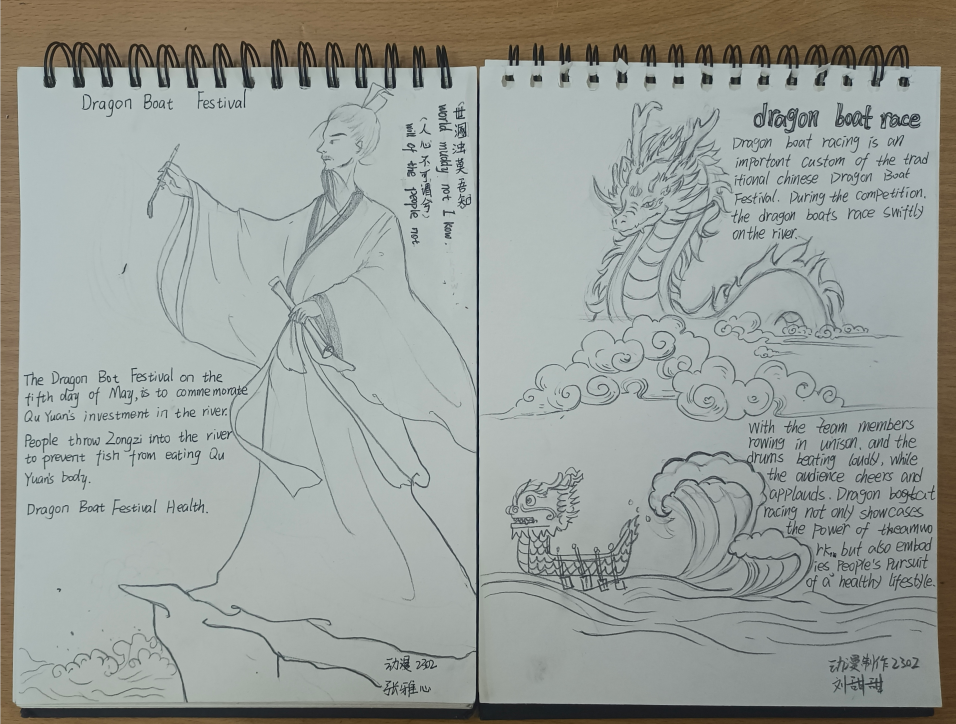 Dragon Boat Festival
世溷浊莫吾知
world muddy not I know.
(人心不可谓兮)
will of the people not
The Dragon Bot Festival on the
fifth day of May, is to commemorate
Qu Yuan's investment in the river.
People throw Zongzi into the river
to prevent fish from eating Qu
Yuan's body.
Dragon Boat Festival Health.
动漫2302
张雅心
dragon boat race
Dragon boat racing is an
important custom of the trad
itional chinese Dragon Boat
Festival. During the competition.
the dragon boats race swiftly
on the river.
With the team members
rowing in unison, and the
drums beating loudly, while
the audience cheers and
applauds. Dragon boat
racing not only showcases
the Power of theamwo
rk, but also embod
ies People's Pursuit
of a healthy lifestyle.
动漫制作2302
刘甜甜